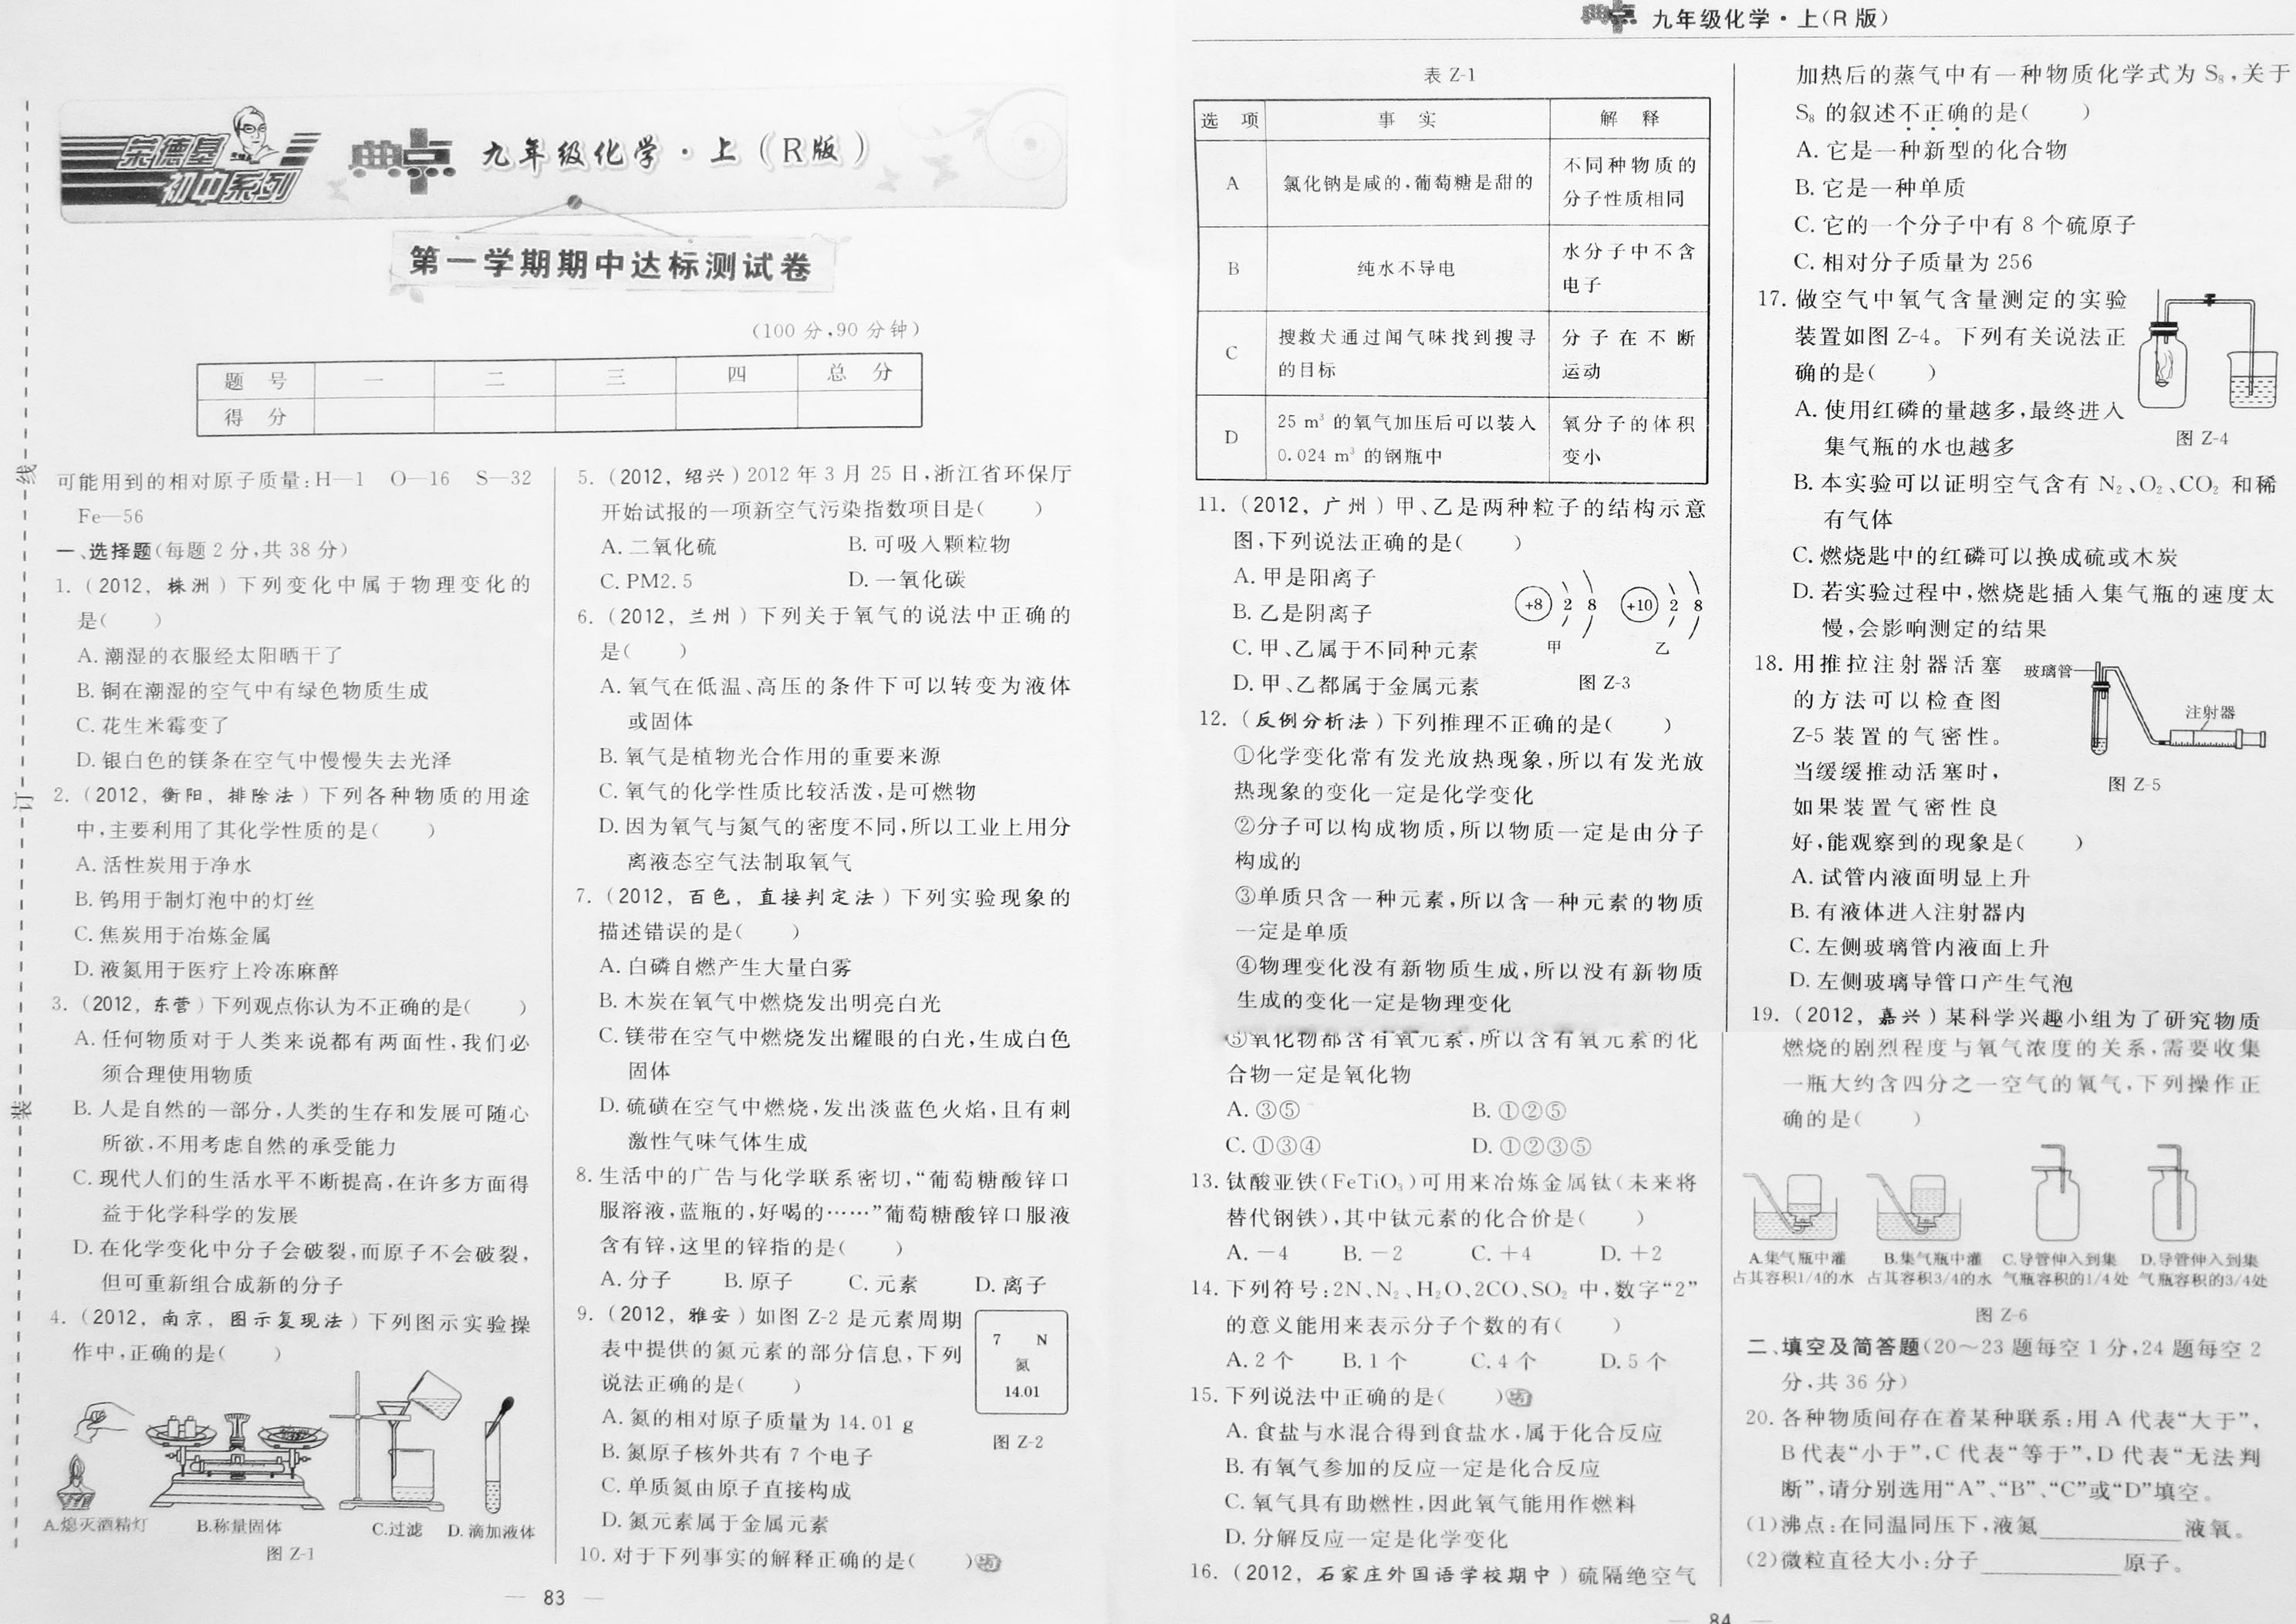 荣德基
初中系列
典点 九年级化学·上(R版)
第一学期期中达标测试卷
(100分,90分钟)
题 号 一 二 三 四 总 分
得 分
线
订
装
可能用到的相对原子质量:H—1 O—16 S—32
Fe—56
一、选择题(每题2分,共38分)
1.(2012,株洲)下列变化中属于物理变化的
是( )
A.潮湿的衣服经太阳晒干了
B.铜在潮湿的空气中有绿色物质生成
C.花生米霉变了
D.银白色的镁条在空气中慢慢失去光泽
2.(2012,衡阳,排除法)下列各种物质的用途
中,主要利用了其化学性质的是( )
A.活性炭用于净水
B.钨用于制灯泡中的灯丝
C.焦炭用于冶炼金属
D.液氮用于医疗上冷冻麻醉
3.(2012,东营)下列观点你认为不正确的是( )
A.任何物质对于人类来说都有两面性,我们必
须合理使用物质
B.人是自然的一部分,人类的生存和发展可随心
所欲,不用考虑自然的承受能力
C.现代人们的生活水平不断提高,在许多方面得
益于化学科学的发展
D.在化学变化中分子会破裂,而原子不会破裂,
但可重新组合成新的分子
4.(2012,南京,图示复现法)下列图示实验操
作中,正确的是( )
A.熄灭酒精灯 B.称量固体 C.过滤 D.滴加液体
图 Z-1
5.(2012,绍兴)2012年3月25日,浙江省环保厅
开始试报的一项新空气污染指数项目是( )
A.二氧化硫 B.可吸入颗粒物
C.PM2.5 D.一氧化碳
6.(2012,兰州)下列关于氧气的说法中正确的
是( )
A.氧气在低温、高压的条件下可以转变为液体
或固体
B.氧气是植物光合作用的重要来源
C.氧气的化学性质比较活泼,是可燃物
D.因为氧气与氮气的密度不同,所以工业上用分
离液态空气法制取氧气
7.(2012,百色,直接判定法)下列实验现象的
描述错误的是( )
A.白磷自燃产生大量白雾
B.木炭在氧气中燃烧发出明亮白光
C.镁带在空气中燃烧发出耀眼的白光,生成白色
固体
D.硫磺在空气中燃烧,发出淡蓝色火焰,且有刺
激性气味气体生成
8.生活中的广告与化学联系密切,“葡萄糖酸锌口
服溶液,蓝瓶的,好喝的……”葡萄糖酸锌口服液
含有锌,这里的锌指的是( )
A.分子 B.原子 C.元素 D.离子
9.(2012,雅安)如图 Z-2 是元素周期
表中提供的氮元素的部分信息,下列
说法正确的是( )
7 N
氮
14.01
图 Z-2
A.氮的相对原子质量为14.01 g
B.氮原子核外共有7个电子
C.单质氮由原子直接构成
D.氮元素属于金属元素
10.对于下列事实的解释正确的是( )
— 83 —
典点 九年级化学·上(R版)
表 Z-1
选 项 事 实 解 释
A 氯化钠是咸的,葡萄糖是甜的 不同种物质的
分子性质相同
B 纯水不导电 水分子中不含
电子
C 搜救犬通过闻气味找到搜寻 分子在不断
的目标 运动
D 25 m³ 的氧气加压后可以装入 氧分子的体积
0.024 m³ 的钢瓶中 变小
11.(2012,广州)甲、乙是两种粒子的结构示意
图,下列说法正确的是( )
A.甲是阳离子
B.乙是阴离子
C.甲、乙属于不同种元素
D.甲、乙都属于金属元素
+8 2 8 +10 2 8
甲 乙
图 Z-3
12.(反例分析法)下列推理不正确的是( )
①化学变化常有发光放热现象,所以有发光放
热现象的变化一定是化学变化
②分子可以构成物质,所以物质一定是由分子
构成的
③单质只含一种元素,所以含一种元素的物质
一定是单质
④物理变化没有新物质生成,所以没有新物质
生成的变化一定是物理变化
⑤氧化物都含有氧元素,所以含有氧元素的化
合物一定是氧化物
A.③⑤ B.①②⑤
C.①③④ D.①②③⑤
13.钛酸亚铁(FeTiO₃)可用来冶炼金属钛(未来将
替代钢铁),其中钛元素的化合价是( )
A.－4 B.－2 C.＋4 D.＋2
14.下列符号:2N、N₂、H₂O、2CO、SO₂ 中,数字“2”
的意义能用来表示分子个数的有( )
A.2个 B.1个 C.4个 D.5个
15.下列说法中正确的是( )
A.食盐与水混合得到食盐水,属于化合反应
B.有氧气参加的反应一定是化合反应
C.氧气具有助燃性,因此氧气能用作燃料
D.分解反应一定是化学变化
16.(2012,石家庄外国语学校期中)硫隔绝空气
加热后的蒸气中有一种物质化学式为 S₈,关于
S₈ 的叙述不正确的是( )
A.它是一种新型的化合物
B.它是一种单质
C.它的一个分子中有8个硫原子
C.相对分子质量为256
17.做空气中氧气含量测定的实验
装置如图 Z-4。下列有关说法正
确的是( )
图 Z-4
A.使用红磷的量越多,最终进入
集气瓶的水也越多
B.本实验可以证明空气含有 N₂、O₂、CO₂ 和稀
有气体
C.燃烧匙中的红磷可以换成硫或木炭
D.若实验过程中,燃烧匙插入集气瓶的速度太
慢,会影响测定的结果
18.用推拉注射器活塞
的方法可以检查图
Z-5 装置的气密性。
当缓缓推动活塞时,
如果装置气密性良
好,能观察到的现象是( )
玻璃管
注射器
图 Z-5
A.试管内液面明显上升
B.有液体进入注射器内
C.左侧玻璃管内液面上升
D.左侧玻璃导管口产生气泡
19.(2012,嘉兴)某科学兴趣小组为了研究物质
燃烧的剧烈程度与氧气浓度的关系,需要收集
一瓶大约含四分之一空气的氧气,下列操作正
确的是( )
A.集气瓶中灌 B.集气瓶中灌 C.导管伸入到集 D.导管伸入到集
占其容积1/4的水 占其容积3/4的水 气瓶容积的1/4处 气瓶容积的3/4处
图 Z-6
二、填空及简答题(20～23题每空1分,24题每空2
分,共36分)
20.各种物质间存在着某种联系:用A代表“大于”,
B代表“小于”,C代表“等于”,D代表“无法判
断”,请分别选用“A”、“B”、“C”或“D”填空。
(1)沸点:在同温同压下,液氮________液氧。
(2)微粒直径大小:分子________原子。
— 84 —